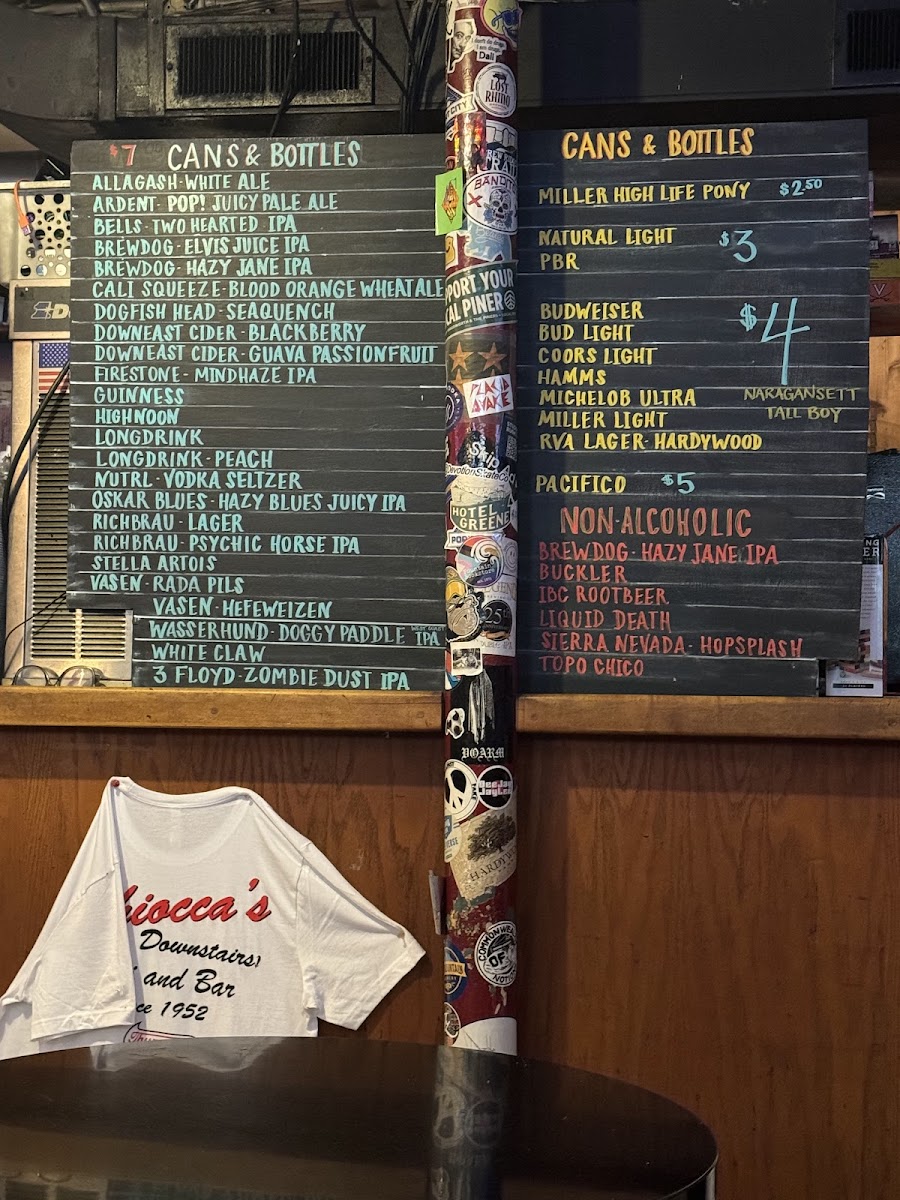 $7 CANS & BOTTLES
ALLAGASH-WHITE ALE
ARDENT- POP! JUICY PALE ALE
BELLS-TWO HEARTED IPA
BREWDOG-ELVIS JUICE IPA
BREWDOG-HAZY JANE IPA
CALI SQUEEZE-BLOOD ORANGE WHEAT ALE
DOGFISH HEAD-SEAQUENCH
DOWNEAST CIDER-BLACKBERRY
DOWNEAST CIDER-GUAVA PASSIONFRUIT
FIRESTONE-MINDHAZE IPA
GUINNESS
HIGHNOON
LONGDRINK
LONGDRINK-PEACH
NUTRL-VODKA SELTZER
OSKAR BLUES-HAZY BLUES JUICY IPA
RICHBRAU-LAGER
RICHBRAU-PSYCHIC HORSE IPA
STELLA ARTOIS
VASEN-RADA PILS
VASEN-HEFEWEIZEN
WASSERHUND-DOGGY PADDLE WEST COAST IPA
WHITE CLAW
3 FLOYD-ZOMBIE DUST IPA
CANS & BOTTLES
MILLER HIGH LIFE PONY $2.50
NATURAL LIGHT $3
PBR
BUDWEISER $4
BUD LIGHT
COORS LIGHT
HAMMS
MICHELOB ULTRA NARAGANSETT
MILLER LIGHT TALL BOY
RVA LAGER-HARDYWOOD
PACIFICO $5
NON-ALCOHOLIC
BREWDOG-HAZY JANE IPA
BUCKLER
IBC ROOTBEER
LIQUID DEATH
SIERRA NEVADA-HOPSPLASH
TOPO CHICO
Dali
LOST
RHINO
CITY
BANDITO
PORT YOUR
AL PINER
PLACID
HOTEL
GREENE
POP
25
DOARM
DeeJay
HARDYW
COMMONWEA
OF
NOT
iocca's
Downstairs
and Bar
ce 1952